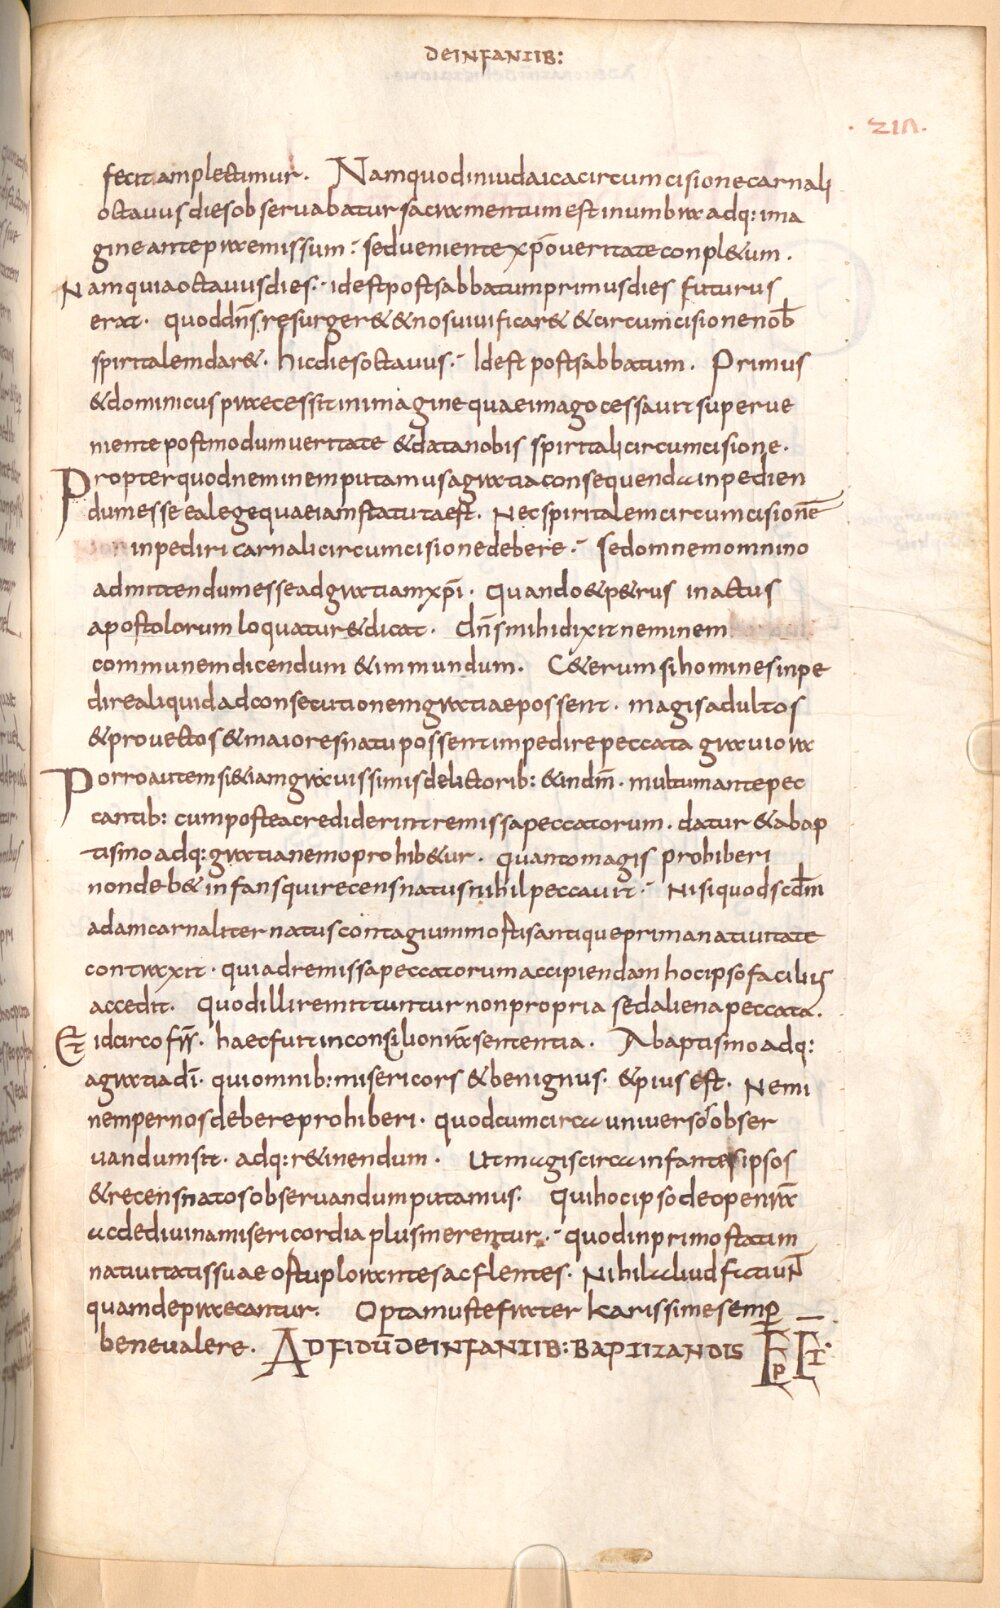 DE INFANTIB:
fecit amplectimur. Nam quod in iudaica circumcisione carnali
octavus dies observabatur sacramentum est in umbra adq: ima
gine ante praemissum: sed veniente xp̄o veritate conpl&um.
Nam quia octavus dies: id est post sabbatum primus dies futurus
erat. quo d̄n̄s resurger& & nos vivificar& & circumcisione nob̄
spiritalem dar&. hic dies octavus: Id est post sabbatum. Primus
& dominicus praecessit in imagine quae imago cessavit superve
niente postmodum veritate & data nobis spiritali circumcisione.
Propter quod neminem putamus a gratia consequenda inpedien
dum esse ea lege quae iam statuta est. Nec spiritalem circumcisionē
inpediri carnali circumcisione debere: sed omnem omnino
admittendum esse ad gratiam xp̄i. quando & p&rus in actus
apostolorum loquatur & dicat. d̄n̄s mihi dixit neminem
communem dicendum & immundum. C&erum si homines inpe
dire aliquid ad consecutionem gratiae possent. magis adultos
& provectos & maiores natu possent impedire peccata graviora
Porro autem si &iam gravissimis delictorib: & in d̄m̄. multum ante pec
cantib: cum postea crediderint remissa peccatorum. datur & a bap
tismo adq: gratia nemo prohib&ur. quanto magis prohiberi
non deb& infans qui recens natus nihil peccavit: Nisi quod scd̄m
adam carnaliter natus contagium mortis antique prima nativitate
contraxit. qui ad remissa peccatorum accipiendam hoc ipso facilius
accedit. quod illi remittuntur non propria sed aliena peccata.
Et idcirco fr̄r̄. haec fuit in consilio nr̄a sententia. A baptismo adq:
a gratia dī. qui omnib: misericors & benignus. & pius est. Nemi
nem per nos debere prohiberi. quod cum circa universos obser
vandum sit. adq: r&inendum. Ut magis circa infantes ipsos
& recens natos observandum putamus. qui hoc ipso de ope nr̄a
ac de divina misericordia plus merentur: quod in primo statim
nativitatis suae ostu plorantes ac flentes. Nihil aliud faciunt
quam deprecantur. Optamus te frater karissime semp
bene valere. AD FIDŪ DE INFANTIB: BAPTIZANDIS EP̄ FI.